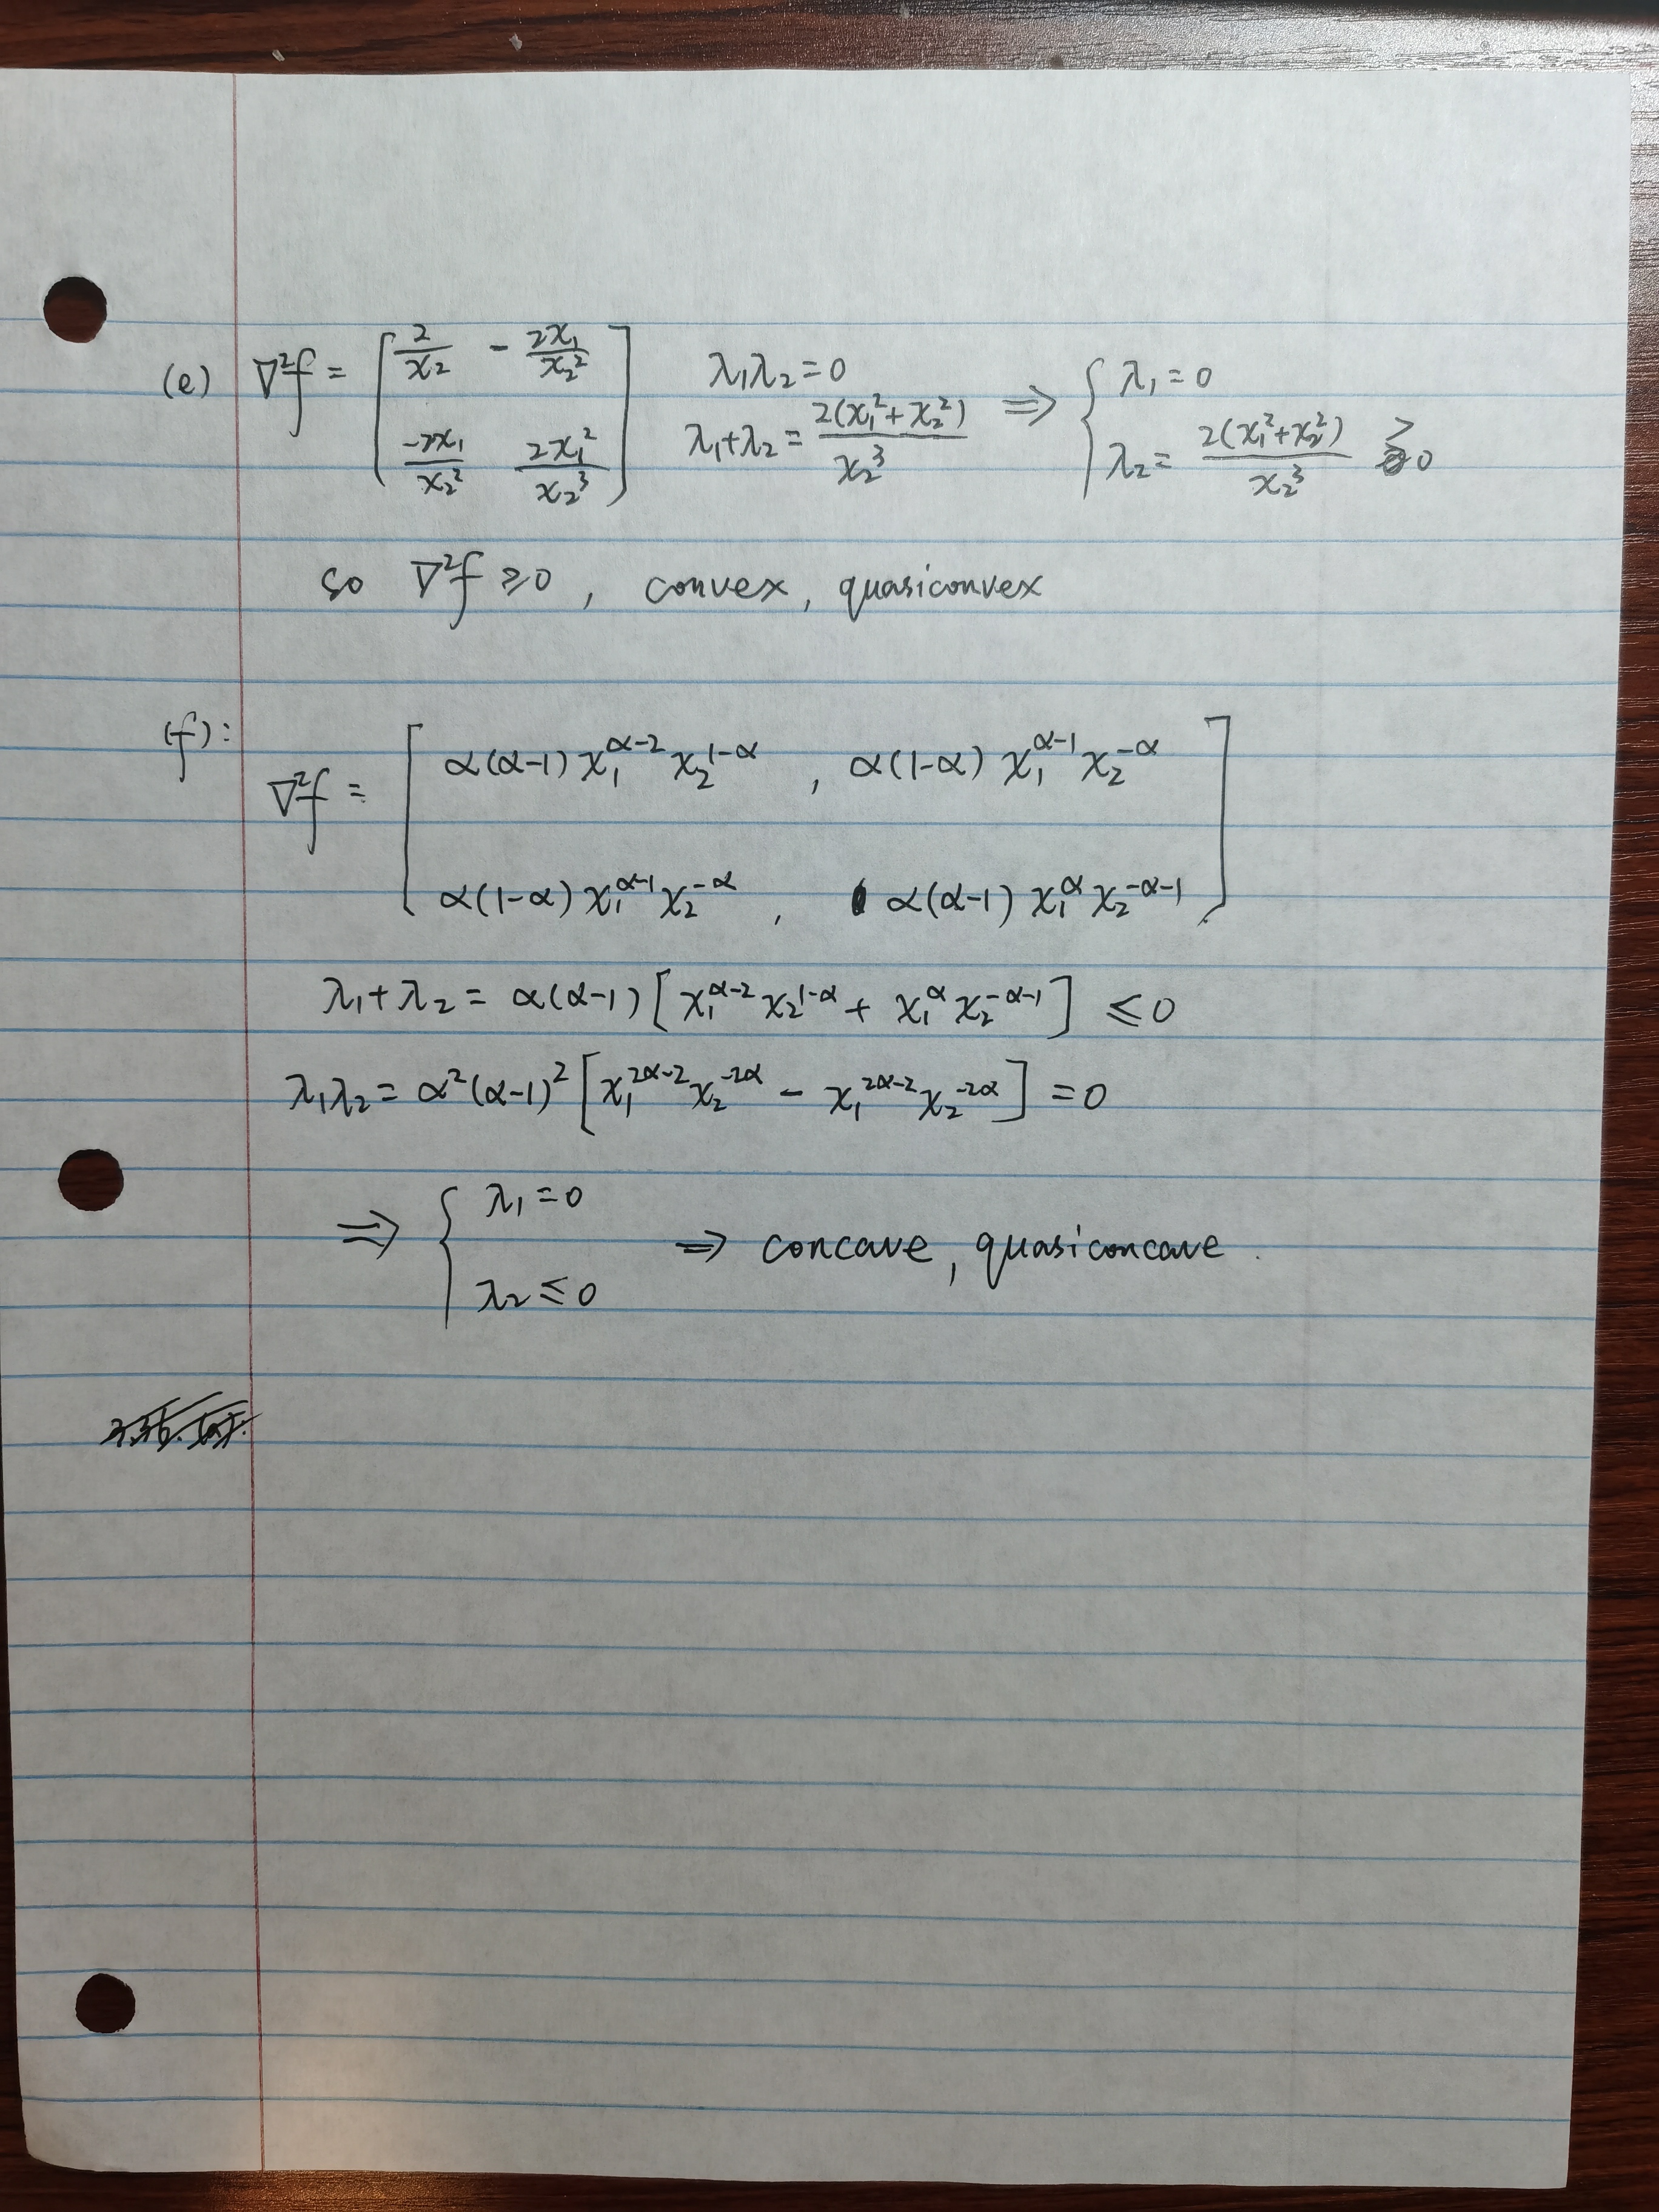 (e) ∇²f = [ 2/x₂ - 2x₁/x₂² ; -2x₁/x₂² 2x₁²/x₂³ ] λ₁λ₂ = 0 λ₁+λ₂ = 2(x₁²+x₂²)/x₂³ ⇒ { λ₁ = 0 ; λ₂ = 2(x₁²+x₂²)/x₂³ > 0
so ∇²f ≥ 0, convex, quasiconvex
(f):
∇²f = [ α(α-1)x₁^{α-2}x₂^{1-α}, α(1-α)x₁^{α-1}x₂^{-α} ; α(1-α)x₁^{α-1}x₂^{-α}, α(α-1)x₁^{α}x₂^{-α-1} ]
λ₁+λ₂ = α(α-1)[x₁^{α-2}x₂^{1-α} + x₁^{α}x₂^{-α-1}] ≤ 0
λ₁λ₂ = α²(α-1)²[x₁^{2α-2}x₂^{-2α} - x₁^{2α-2}x₂^{-2α}] = 0
⇒ { λ₁ = 0 ; λ₂ ≤ 0 ⇒ concave, quasiconcave.